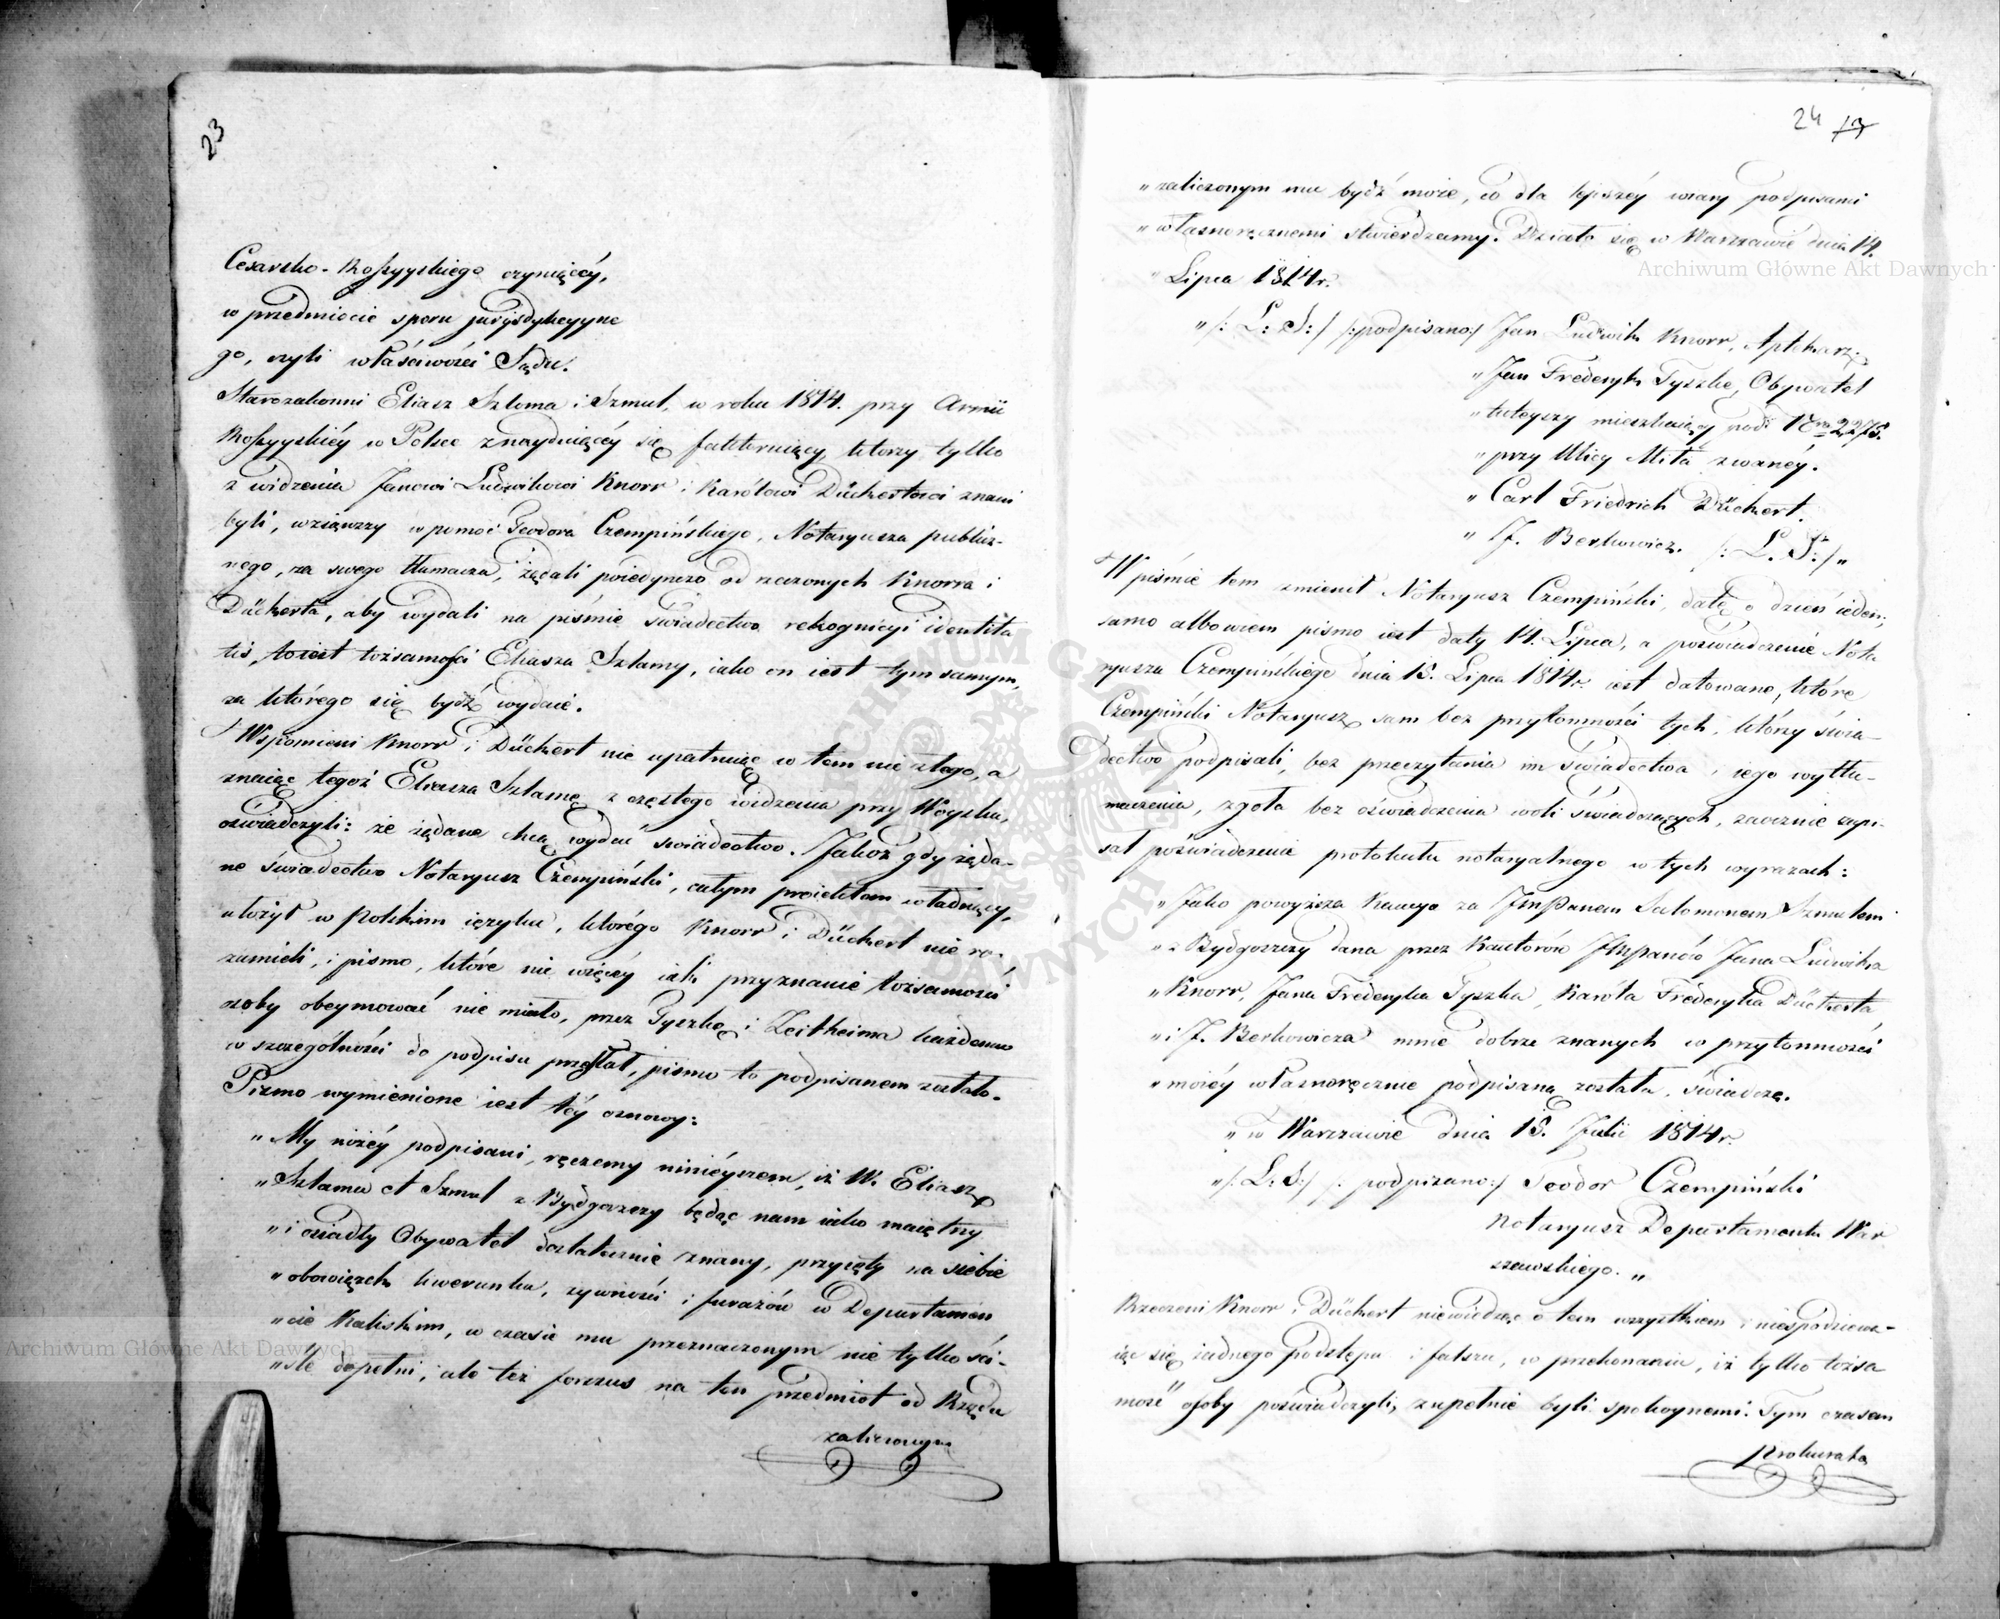 23
Cesarsko-Rossyyskiego czyniącéy,
w przedmiocie sporu juryzdykcyyne
go, czyli właściwości Sądu.
Starozakonni Eliasz Szloma i Szmul, w roku 1814. przy Armii
Rossyyskiéy w Polsce znayduiącéy się faktoruiący, którzy tylko
z widzenia Janowi Ludwikowi Knorr i Karólowi Dückertowi znani
byli, wziąwszy w pomoc Teodora Czempińskiego, Notaryusza publicz-
nego, za swego tłumacza, żądali poiedynczo od rzeczonych Knorra i
Dückerta, aby wydali na piśmie świadectwo rekognicyi identita
tis, to iest tożsamości Eliasza Szlamy, iako on iest tym samym,
za którego się bydź wydaie.
Wspomieni Knorr i Dückert nie upatruiąc w tem nic złego, a
znaiąc tegoż Eliasza Szlamę z częstego widzenia przy Woysku,
oświadczyli: że żądane chcą wydać świadectwo. Jakoż gdy żąda-
ne świadectwo Notaryusz Czempiński, całym proiektem władnący,
ułożył w Polskim ięzyku, którego Knorr i Dückert nie ro-
zumieli, i pismo, które nic więcéy iak przyznanie tożsamości
osoby obeymować nie miało, przez Tyszkę i Zeitheima każdemu
w szczególności do podpisu przesłał, pismo to podpisanem zostało.
Pismo wymienione iest téy osnowy:
„My niżéy podpisani, ręczemy ninieyszem, iż W. Eliasz
„Szlama et Szmul z Bydgoszczy będąc nam iako maiętny
„i osiadły Obywatel dostatecznie znany, przyięty na siebie
„obowiązek liwerunku, żywności i furażów w Departamen
„cie Kaliskim, w czasie mu przeznaczonym nie tylko ści-
„śle dopełni, ale też forszus na ten przedmiot od Rządu
zaliczonym
24 13
„zaliczonym mu bydź może, co dla lepszéy wiary podpisami
„własnoręcznemi stwierdzamy. Działo się w Warszawie dnia 14.
„Lipca 1814r.
„/: L: S:/ /:podpisano:/ Jan Ludwik Knorr, Aptekarz.
„Jan Frederyk Tyszke, Obywatel
„tuteyszy mieszkaiący pod Nrm 2275.
„przy Ulicy Miła zwanéy.
„Carl Friedrich Dückert.
„J. Berkowicz. /: L. S:/„
W piśmie tem zmienił Notaryusz Czempiński, datę o dzień ieden,
samo albowiem pismo iest daty 14. Lipca, a poświadczenie Nota
ryusza Czempińskiego dnia 15. Lipca 1814r. iest datowane, które
Czempiński Notaryusz sam bez przytomności tych, którzy świa-
dectwo podpisali, bez przeczytania im świadectwa i iego wytłu-
maczenia, zgoła bez oświadczenia woli świadczących, zaocznie wpi-
sał poświadczenie protokułu notaryalnego w tych wyrazach:
„Jako powyższa Kaucya za JmPanem Salomonem Szmulem
„z Bydgoszczy dana przez Kautorów JmPanów Jana Ludwika
„Knorr, Jana Frederyka Tyszka, Karóla Frederyka Dückerta
„i J. Berkowicza mnie dobrze znanych w przytomności
„moiéy własnoręcznie podpisaną została, świadczę.
„w Warszawie dnia 15. Julii 1814r.
„/:L: S:/ /: podpisano:/ Teodor Czempiński
Notaryusz Departamentu War
szawskiego.„
Rzeczeni Knorr i Dückert niewiedząc o tem wszystkiem i niespodziewa-
iąc się żadnego podstępu i fałszu, w przekonaniu, iż tylko tożsa
mość osoby poświadczyli, zupełnie byli spokoynemi. Tym czasem
Prokurato
Archiwum Główne Akt Dawnych
Archiwum Główne Akt Dawnych